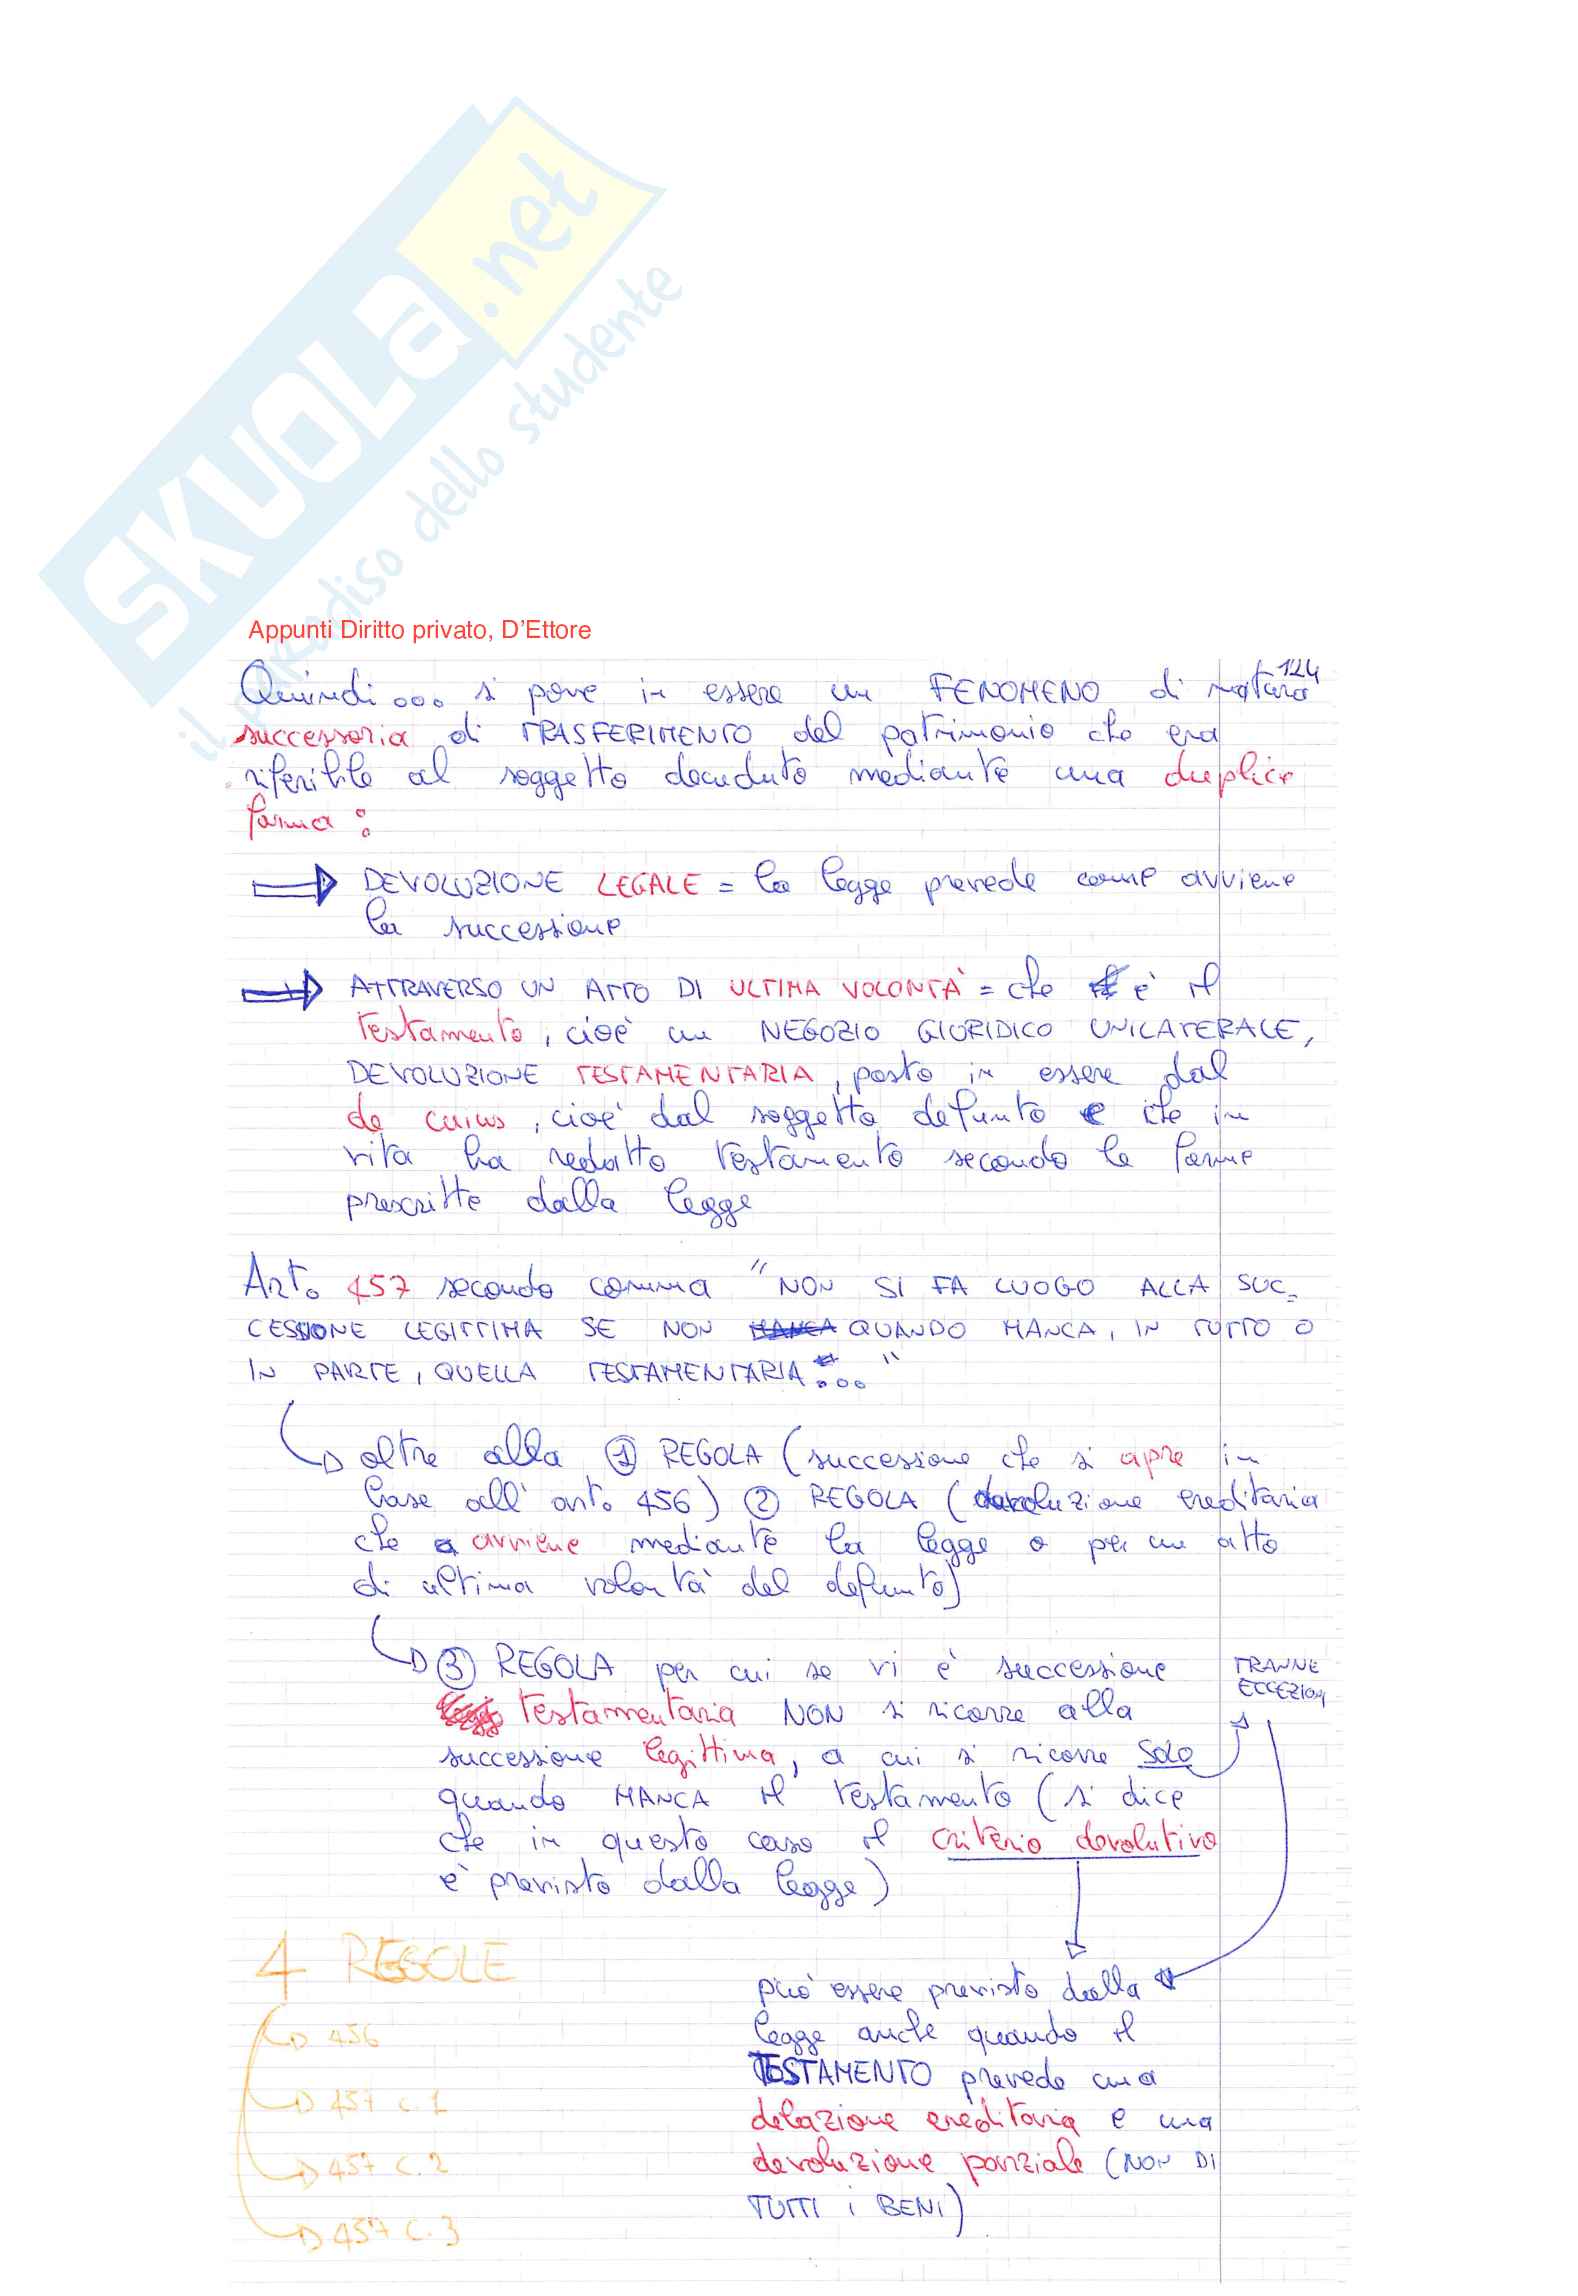 SKUOLA.net
il paradiso dello studente
Appunti Diritto privato, D'Ettore
124
Quindi... si pone in essere un FENOMENO di natura
successoria di TRASFERIMENTO del patrimonio che era
riferibile al soggetto deceduto mediante una duplice
forma:
DEVOLUZIONE LEGALE = la legge prevede come avviene
la successione
ATTRAVERSO UN ATTO DI ULTIMA VOLONTÀ = che è il
testamento, cioè un NEGOZIO GIURIDICO UNILATERALE,
DEVOLUZIONE TESTAMENTARIA, posto in essere dal
de cuius, cioè dal soggetto defunto e che in
vita ha redatto testamento secondo le forme
prescritte dalla legge
Art. 457 secondo comma "NON SI FA LUOGO ALLA SUC-
CESSIONE LEGITTIMA SE NON MANCA QUANDO MANCA, IN TUTTO O
IN PARTE, QUELLA TESTAMENTARIA..."
oltre alla 1 REGOLA (successione che si apre in
base all'art. 456) 2 REGOLA (devoluzione ereditaria
che avviene mediante la legge o per un atto
di ultima volontà del defunto)
3 REGOLA per cui se vi è successione
testamentaria NON si ricorre alla
successione legittima, a cui si ricorre solo
quando MANCA il testamento (si dice
che in questo caso il criterio devolutivo
è previsto dalla legge)
TRANNE
ECCEZIONI
può essere previsto dalla
legge anche quando il
TESTAMENTO prevede una
delazione ereditaria e una
devoluzione parziale (NON DI
TUTTI i BENI)
4 REGOLE
456
457 c. 1
457 c. 2
457 c. 3